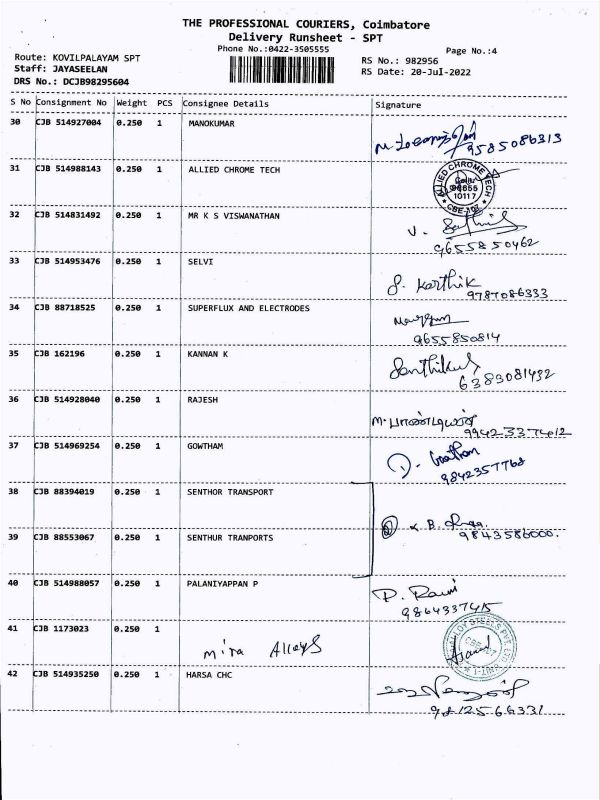 THE PROFESSIONAL COURIERS, Coimbatore
Delivery Runsheet - SPT
Phone No.:0422-3505555
Page No.:4
Route: KOVILPALAYAM SPT
RS No.: 982956
Staff: JAYASEELAN
RS Date: 20-Jul-2022
DRS No.: DCJB98295604
S No Consignment No Weight PCS Consignee Details Signature
30 CJB 514927004 0.250 1 MANOKUMAR
9585086313
31 CJB 514988143 0.250 1 ALLIED CHROME TECH
ALLIED CHROME TECH
CBE-107
32 CJB 514831492 0.250 1 MR K S VISWANATHAN
9655850462
33 CJB 514953476 0.250 1 SELVI
S. Karthik
9787086333
34 CJB 88718525 0.250 1 SUPERFLUX AND ELECTRODES
9655850814
35 CJB 162196 0.250 1 KANNAN K
6383081432
36 CJB 514928040 0.250 1 RAJESH
M. பாண்டியன்
9942337412
37 CJB 514969254 0.250 1 GOWTHAM
9842357768
38 CJB 88394019 0.250 1 SENTHOR TRANSPORT
9843586000.
39 CJB 88553067 0.250 1 SENTHUR TRANPORTS
40 CJB 514988057 0.250 1 PALANIYAPPAN P
9864337415
41 CJB 1173023 0.250 1
Mira Alloys
42 CJB 514935250 0.250 1 HARSA CHC
9812566331